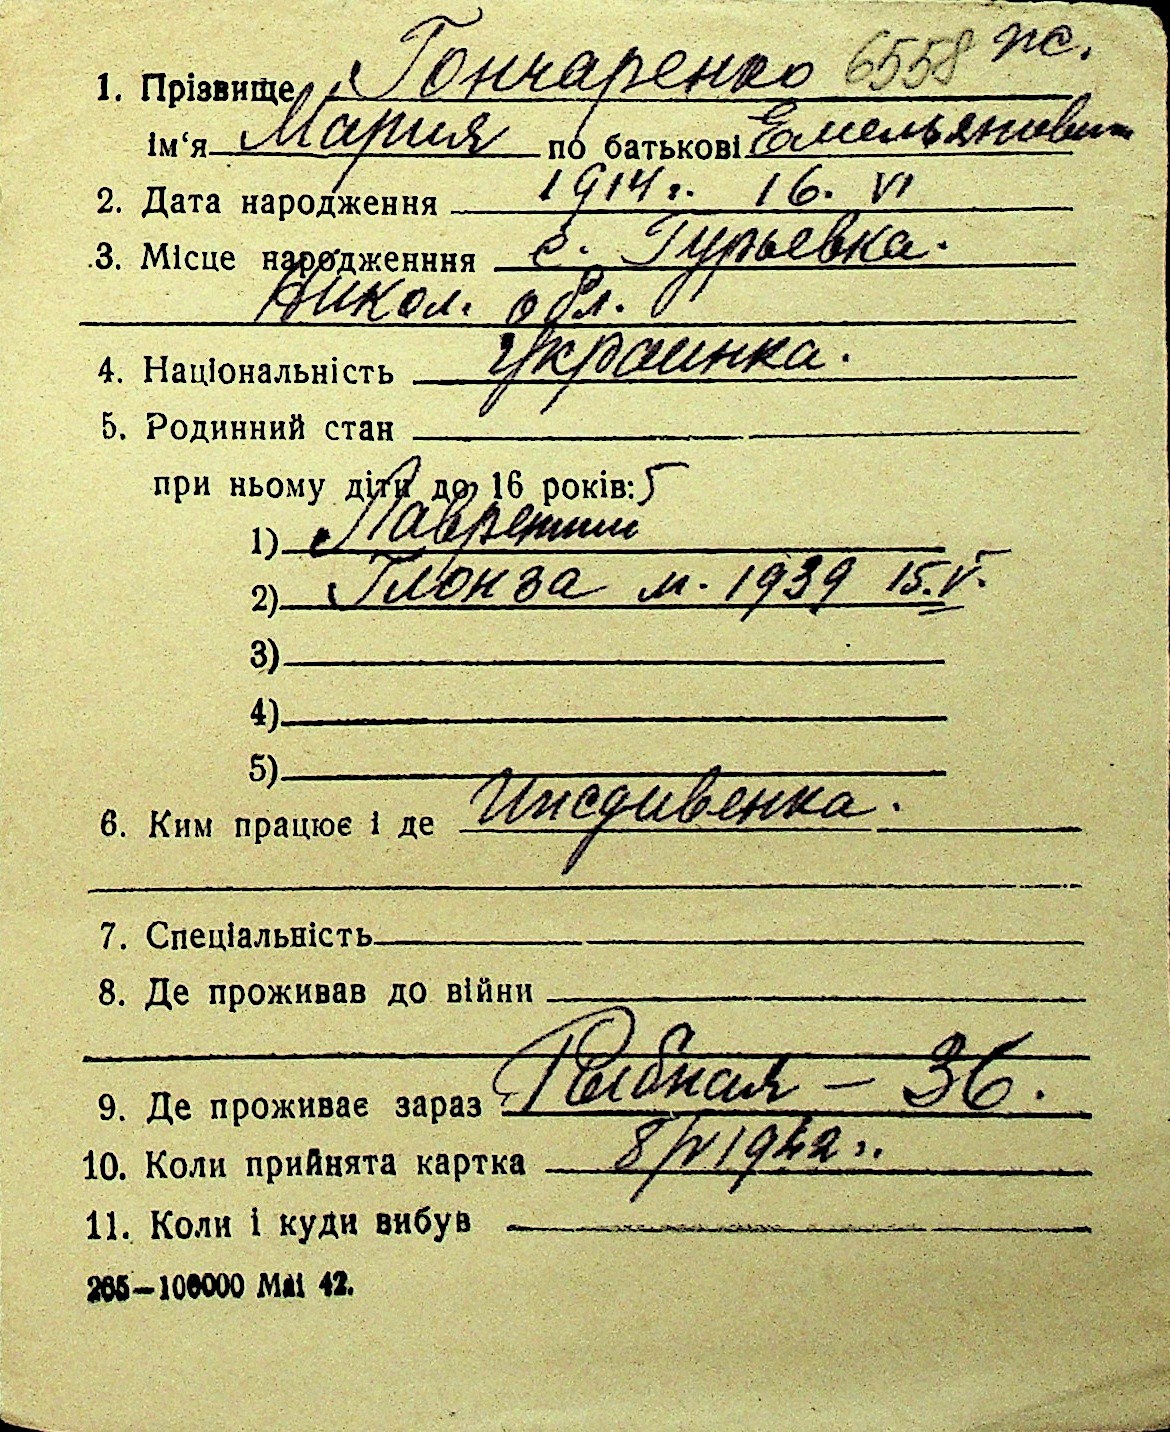 1. Прізвище Гончаренко 6558 ж.
ім‘я Мария по батькові Емельяновна
2. Дата народження 1914 г. 16. VI
3. Місце народженння с. Гурьевка.
Никол. обл.
4. Національність Украинка.
5. Родинний стан
при ньому діти до 16 років:
1) Лаврентий
2) м. 1939 15.V.
3)
4)
5)
6. Ким працює і де Иждивенка.
7. Спеціальність
8. Де проживав до війни
9. Де проживає зараз Рыбная – 36.
10. Коли прийнята картка 1942 г.
11. Коли і куди вибув
265—100000 Mai 42.